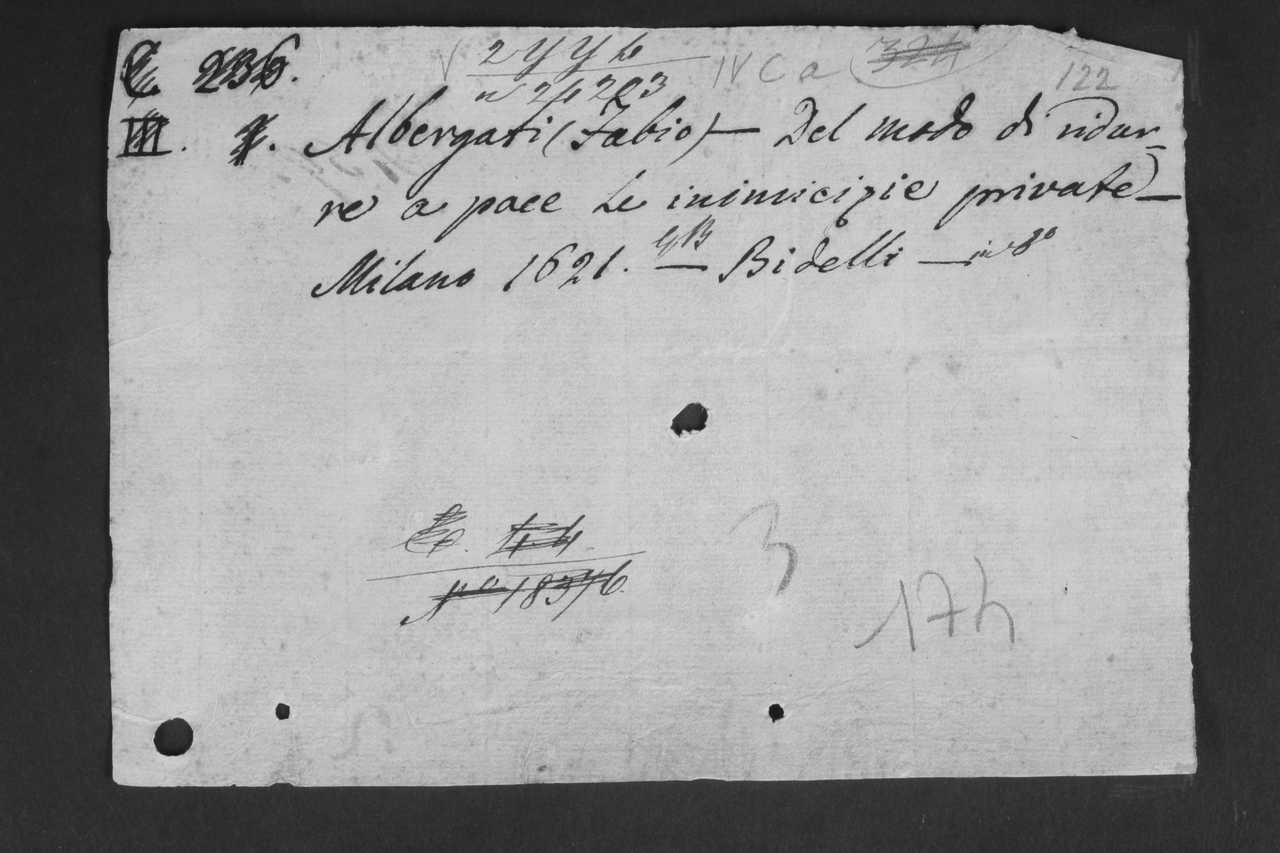 E 236.
2 yy 6
n 24203
IV C a 324
122
III. 1. Albergati (Fabio) — Del modo di ridur-
re a pace le inimicizie private —
Milano 1621. — GB Bidelli — in 8°
E. 44.
N° 18376.
3
174